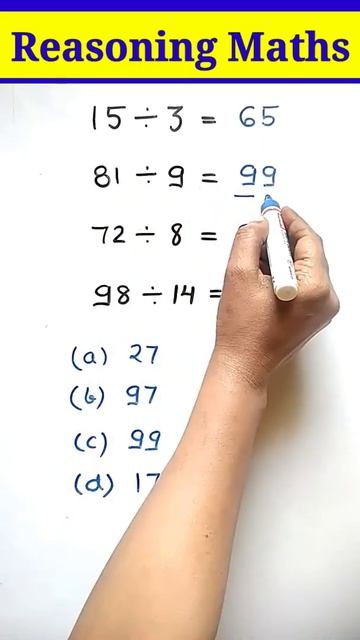 Reasoning Maths
15 ÷ 3 = 65
81 ÷ 9 = 99
72 ÷ 8 =
98 ÷ 14 =
(a) 27
(b) 97
(c) 99
(d) 17